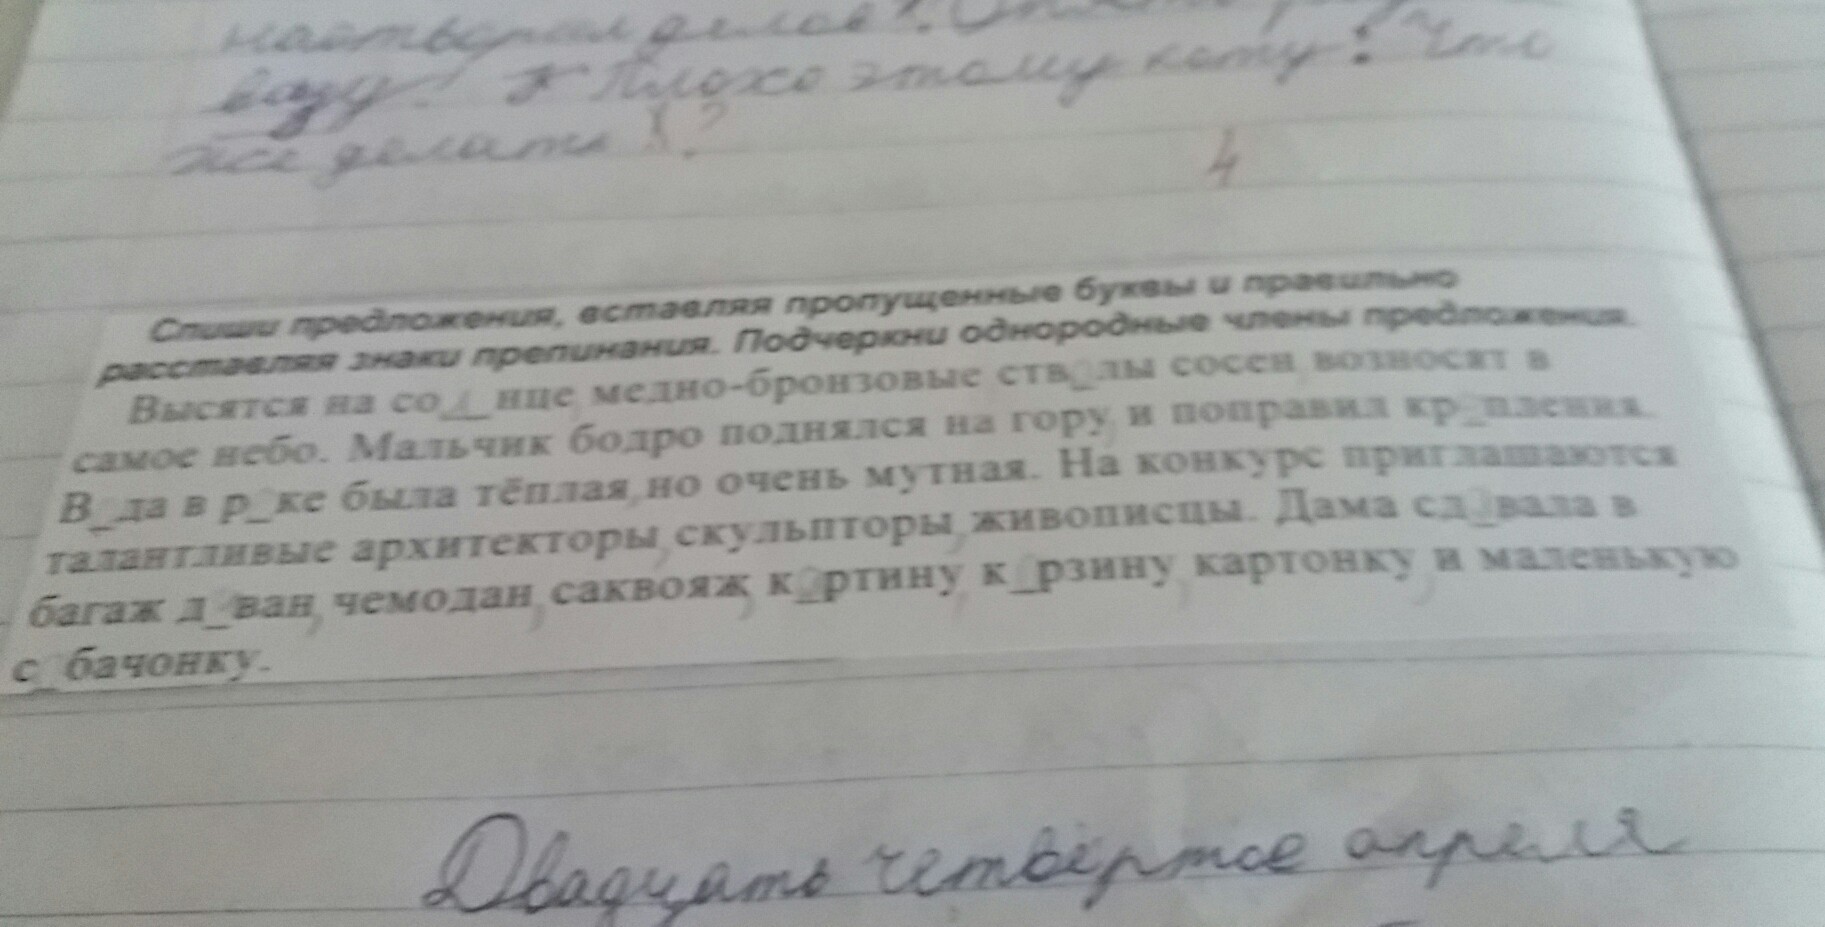 натворил делов!
вазу! Плохо этому коту! Что
же делать?
4
Спиши предложения, вставляя пропущенные буквы и правильно
расставляя знаки препинания. Подчеркни однородные члены предложения.
Высятся на сол_нце медно-бронзовые ств_лы сосен возносят в
самое небо. Мальчик бодро поднялся на гору, и поправил кр_пления.
В_да в р_ке была тёплая, но очень мутная. На конкурс приглашаются
талантливые архитекторы, скульпторы, живописцы. Дама сд_вала в
багаж д_ван, чемодан, саквояж, к_ртину, к_рзину, картонку, и маленькую
с_бачонку.
Двадцать четвёртое апреля